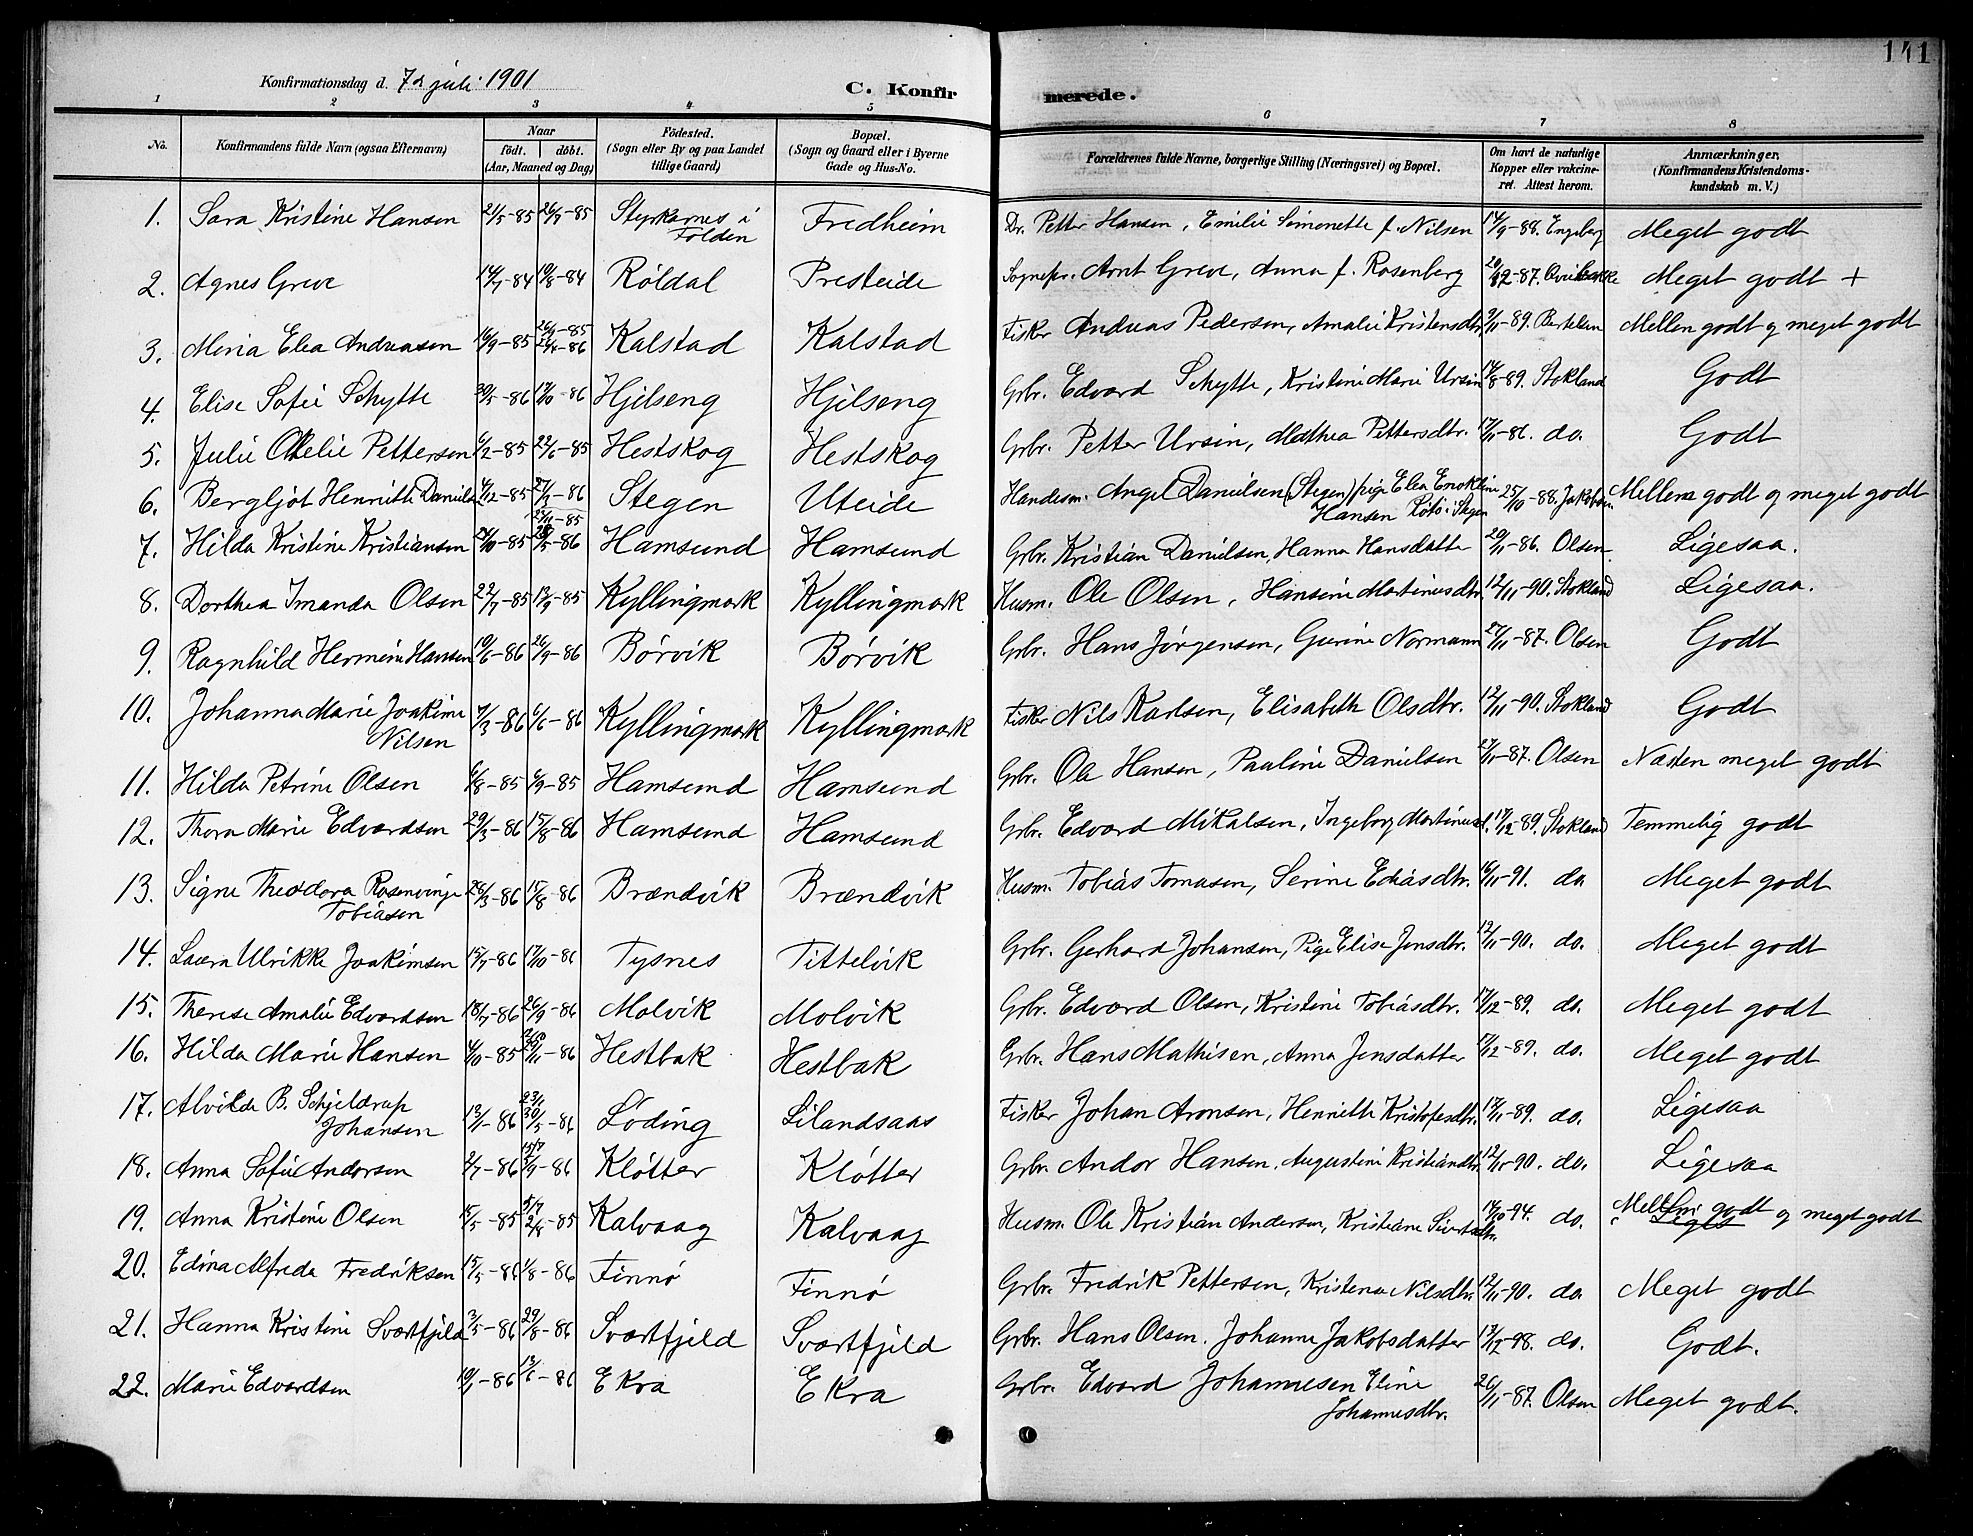 141
Konfirmationsdag d. 7de juli 1901
C. Konfirmerede.
1 2 3 4 5 6 7 8
No. | Konfirmandens fulde Navn (ogsaa Efternavn) | Naar født. døbt. (Aar, Maaned og Dag) | Fødested. (Sogn eller By og paa Landet tillige Gaard) | Bopæl. (Sogn og Gaard eller i Byerne Gade og Hus-No. | Forældrenes fulde Navne, borgerlige Stilling (Næringsvei) og Bopæl. | Om havt de naturlige Kopper eller vakcineret. Attest herom. | Anmærkninger. (Konfirmandens Kristendomskundskab m. V.)
1. Sara Kristine Hansen 21/5-85 26/8-85 Styrkarnes i Folden Fredheim Dr. Petter Hansen, Emilie Simonette f. Nilsen 14/9-88. Engeberg Meget godt
2. Agnes Greve 14/7-84 10/8-84 Røldal Presteide Sognepr. Arnt Greve, Anna f. Rosenberg 20/12-87. Meget godt +
3. Maria Elea Andreasen 16/9-85 26/9-85 26/4-86 Kalstad Kalstad Fisker Andreas Pedersen, Amalie Kristensdtr. 9/11-89. Bertelsen Mellem godt og meget godt
4. Elise Sofie Schytte 30/5-86 17/10-86 Hjilseng Hjilseng Grbr. Edvard Schytte, Kristine Marie Ursin 14/8-89. Stokland Godt
5. Julie Otelie Pettersen 6/2-85 22/6-85 Hestskog Hestskog Grbr. Petter Ursin, Mathea Pettersdtr. 17/11-86. do. Godt
6. Bergljot Henritte Daniels 4/12-85 27/2-86 Stegen Uteide Handesm. Angel Danielsen (Stegen) pige Elea Enokline Hansen Røtø i Stegen 25/10-88. Jakobsen Mellem godt og meget godt
7. Hilda Kristine Kristiansen 24/10-85 22/11-85 28/5-86 Hamsund Hamsund Grbr. Kristian Danielsen, Hanna Hansdatter 20/11-86. Olsen Ligesaa.
8. Dorthea Imanda Olsen 22/7-85 13/9-85 Kyllingmark Kyllingmark Husm. Ole Olsen, Hansine Martinusdtr. 12/11-90. Stokland Ligesaa.
9. Ragnhild Hermine Hansen 10/6-86 26/9-86 Børvik Børvik Grbr. Hans Jørgensen, Gurine Normann 27/11-87. Olsen Godt
10. Johanna Marie Joakime Nilsen 7/3-86 6/6-86 Kyllingmark Kyllingmark Fisker Nils Karlsen, Elisabeth Olsdtr. 12/11-90. Stokland Godt
11. Hilda Petrine Olsen 6/8-85 6/9-85 Hamsund Hamsund Grbr. Ole Hansen, Pauline Danielsen 27/11-87. Olsen Næsten meget godt
12. Thora Marie Edvardsen 29/3-86 15/8-86 Hamsund Hamsund Grbr. Edvard Mikalsen, Ingeborg Martinusd. 17/12-89. Stokland Temmelig godt
13. Signe Theodora Rosenvinge Tobiasen 28/3-86 15/8-86 Brændvik Brændvik Husm. Tobias Tomasen, Serine Eliasdtr. 16/11-91. do. Meget godt
14. Laura Ulrikke Joakimsen 15/7-86 17/10-86 Tysnes Tittelvik Grbr. Gerhard Johansen, Pige Elise Jensdtr. 12/11-90. do. Meget godt
15. Therese Amalie Edvardsen 18/7-86 26/9-86 Molvik Molvik Grbr. Edvard Olsen, Kristine Tobiasdtr. 17/12-89. do. Meget godt
16. Hilda Marie Hansen 4/10-85 /11-86 Hestbak Hestbak Grbr. Hans Mathisen, Anna Jensdatter 17/12-89. do. Meget godt
17. Alvilde B. Schjeldrup Johansen 13/1-86 23/1 30/5-86 Løding Lilandsaas Fisker Johan Aronsen, Henritte Kristofesdtr. 17/11-89. do. Ligesaa
18. Anna Sofie Andorsen 2/7-86 15/7 5/9-86 Kløtter Kløtter Grbr. Andor Hansen, Augustine Kristiandtr. 12/11-90. do. Ligesaa
19. Anna Kristine Olsen 15/5-85 5/7 2/8-85 Kalvaag Kalvaag Husm. Ole Kristian Andersen, Kristiane Sivertsdtr. 14/10-94. do. Mellem godt og meget godt
20. Edina Alfrida Fredriksen 15/5-86 1/8-86 Finnø Finnø Grbr. Fredrik Pettersen, Kristena Nilsdtr. 12/11-90. do. Meget godt
21. Hanna Kristine Svartfjeld 3/5-86 29/8-86 Svartfjeld Svartfjeld Grbr. Hans Olsen. Johanne Jakobsdatter 17/12-98. do. Godt.
22. Marie Edvardsen 10/1-86 13/6-86 Ekra Ekra Grbr. Edvard Johannesen Eline Johannesdtr. 26/11-87. Olsen Meget godt.